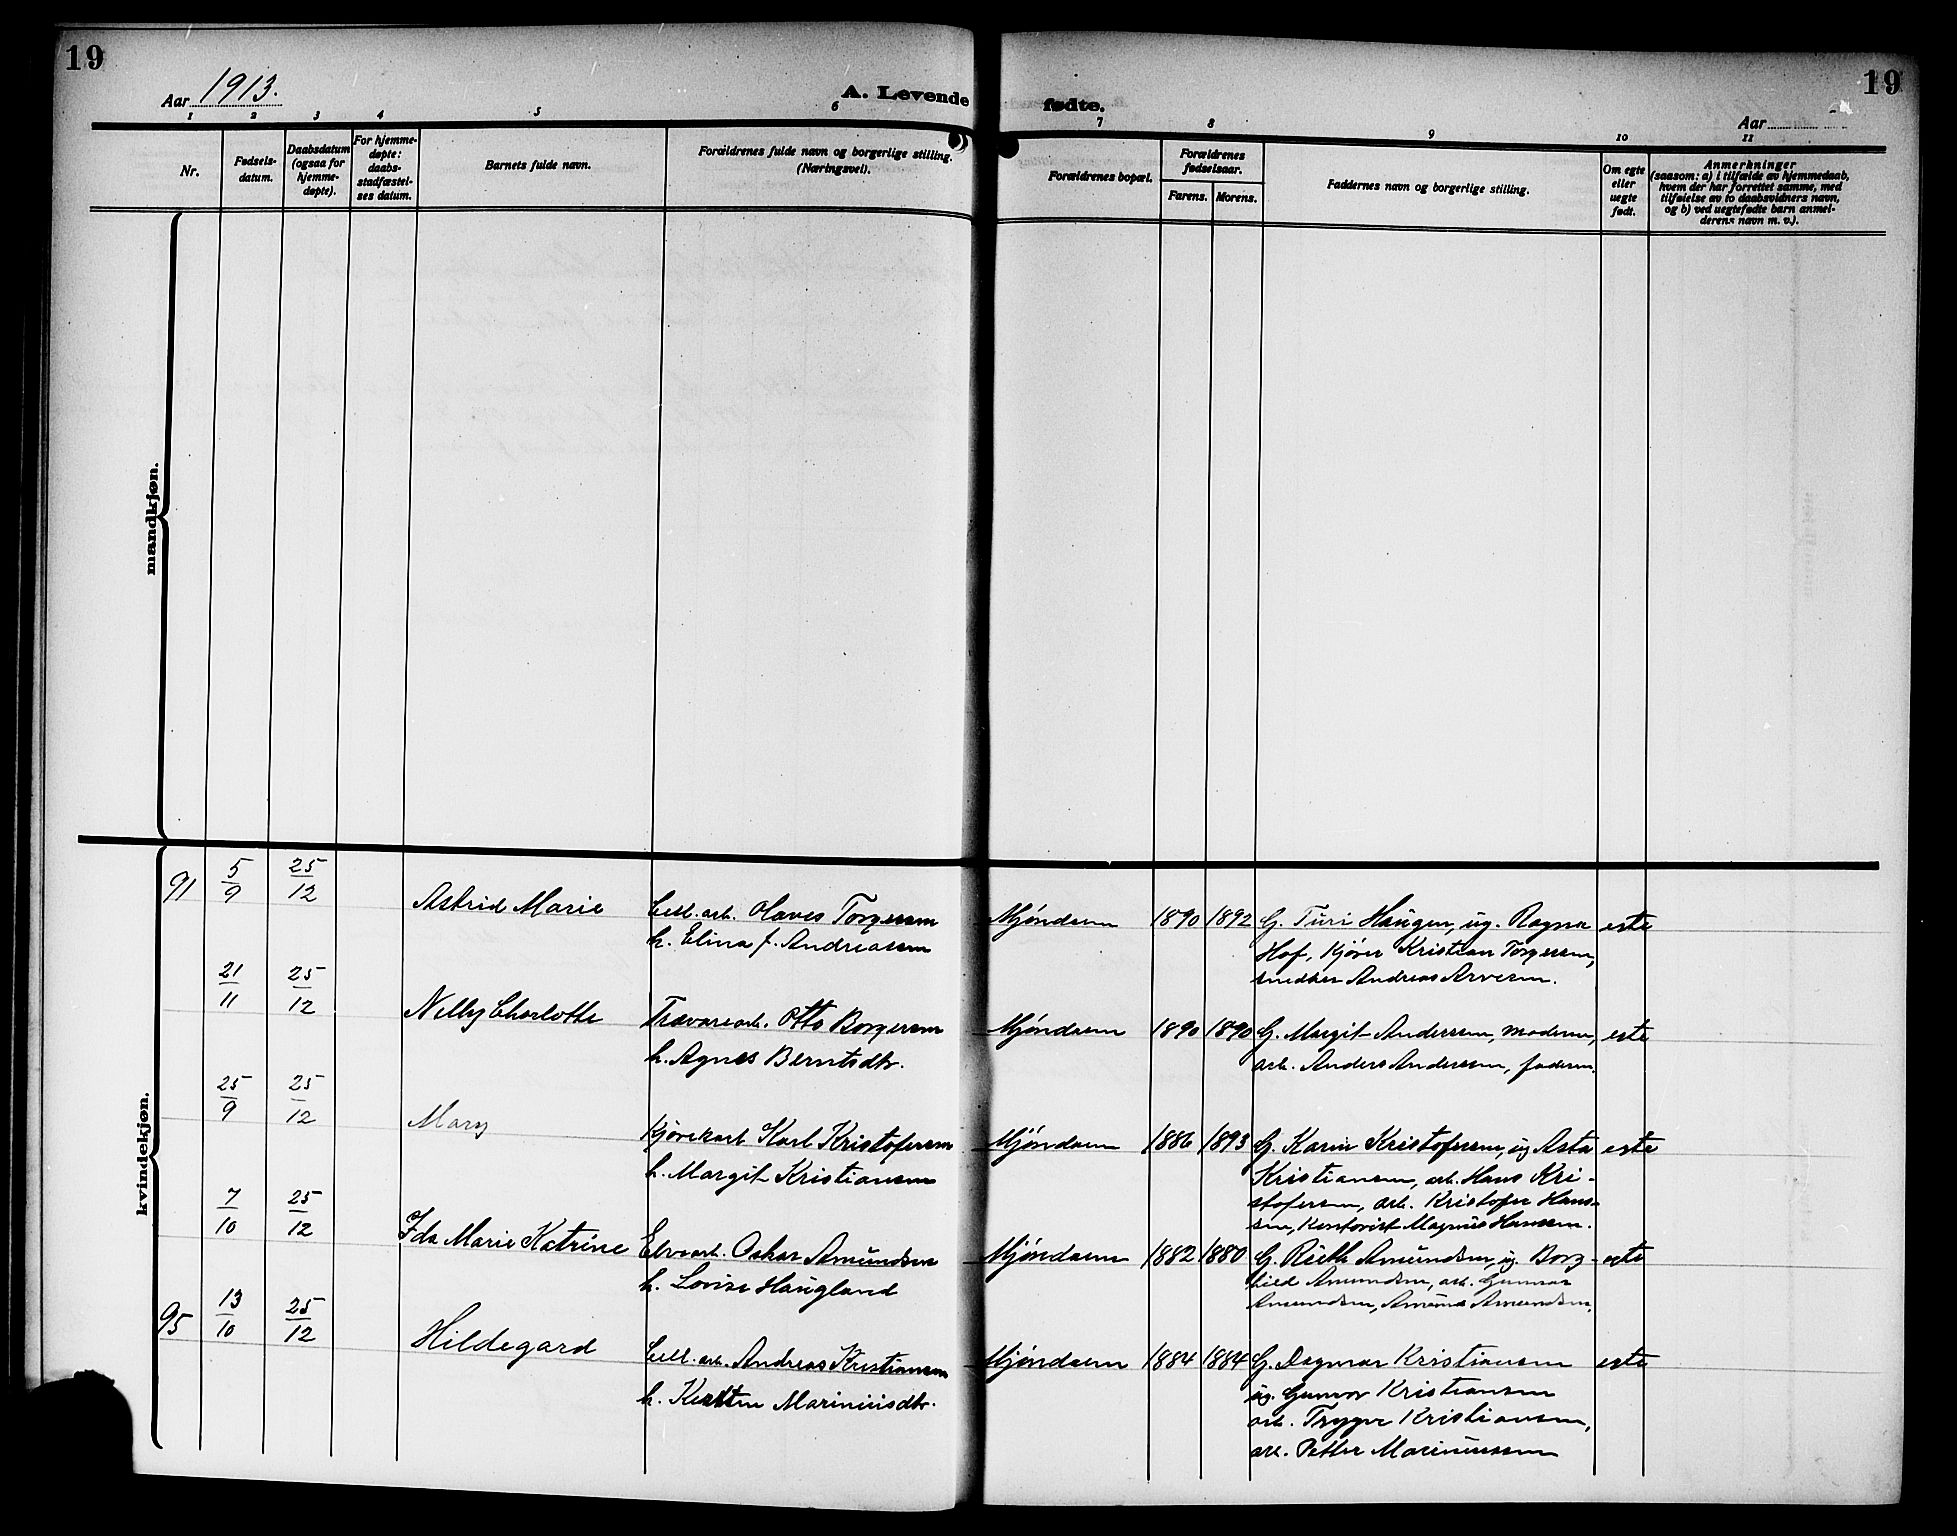 19
19
Aar 1913.
A. Levende fødte.
Aar
1 2 3 4 5 6 7 8 9 10 11
Nr.
Fødsels-
datum.
Daabsdatum
(ogsaa for
hjemme-
døpte).
For hjemme-
døpte:
daabs-
stadfæstel-
ses datum.
Barnets fulde navn.
Forældrenes fulde navn og borgerlige stilling.
(Næringsvei).
Forældrenes bopæl.
Forældrenes
fødselsaar.
Farens. Morens.
Faddernes navn og borgerlige stilling.
Om egte
eller
uegte
født.
Anmerkninger
(saasom: a) i tilfælde av hjemmedaab,
hvem der har forrettet samme, med
tilføielse av to daabsvidners navn,
og b) ved uegtefødte barn anmel-
derens navn m. v.).
mandkjøn.
kvindekjøn.
91 5/9 25/12 Astrid Marie Cell. arb. Olaves Torgersen Mjøndalen 1890 1892 G. Turi Haugen, ug. Ragna egte
h. Elina f. Andreassen Hof, Kjører Kristian Torgersen,
snedker Andreas Arvesen.
21/11 25/12 Nelly Charlotte Trævarearb. Otto Borgersen Mjøndalen 1890 1890 G. Margit Anderssen, moderen, egte
h. Agnes Berntsdtr. arb. Anders Anderssen, faderen.
25/9 25/12 Mary Karl Kristofersen Mjøndalen 1886 1893 G. Karin Kristofersen, ug Asta egte
h. Margit Kristiansen Kristiansen, arb. Hans Kri-
stofersen, arb. Kristofer Han-
sen, Kontorist Magnus Hansen.
7/10 25/12 Ida Marie Katrine Elvearb. Oskar Amundsen Mjøndalen 1882 1880 G. Ruth Amundsen, ug. Borg- egte
h. Lovise Haugland hild Amundsen, arb. Gunnar
Amundsen, Amund Amundsen.
95 13/10 25/12 Hildegard Cell. arb. Andreas Kristiansen Mjøndalen 1884 1884 G. Dagmar Kristiansen egte
h. Mariniusdtr. ug. Gunvor Kristiansen
arb. Trygve Kristiansen,
arb. Petter Mariniussen